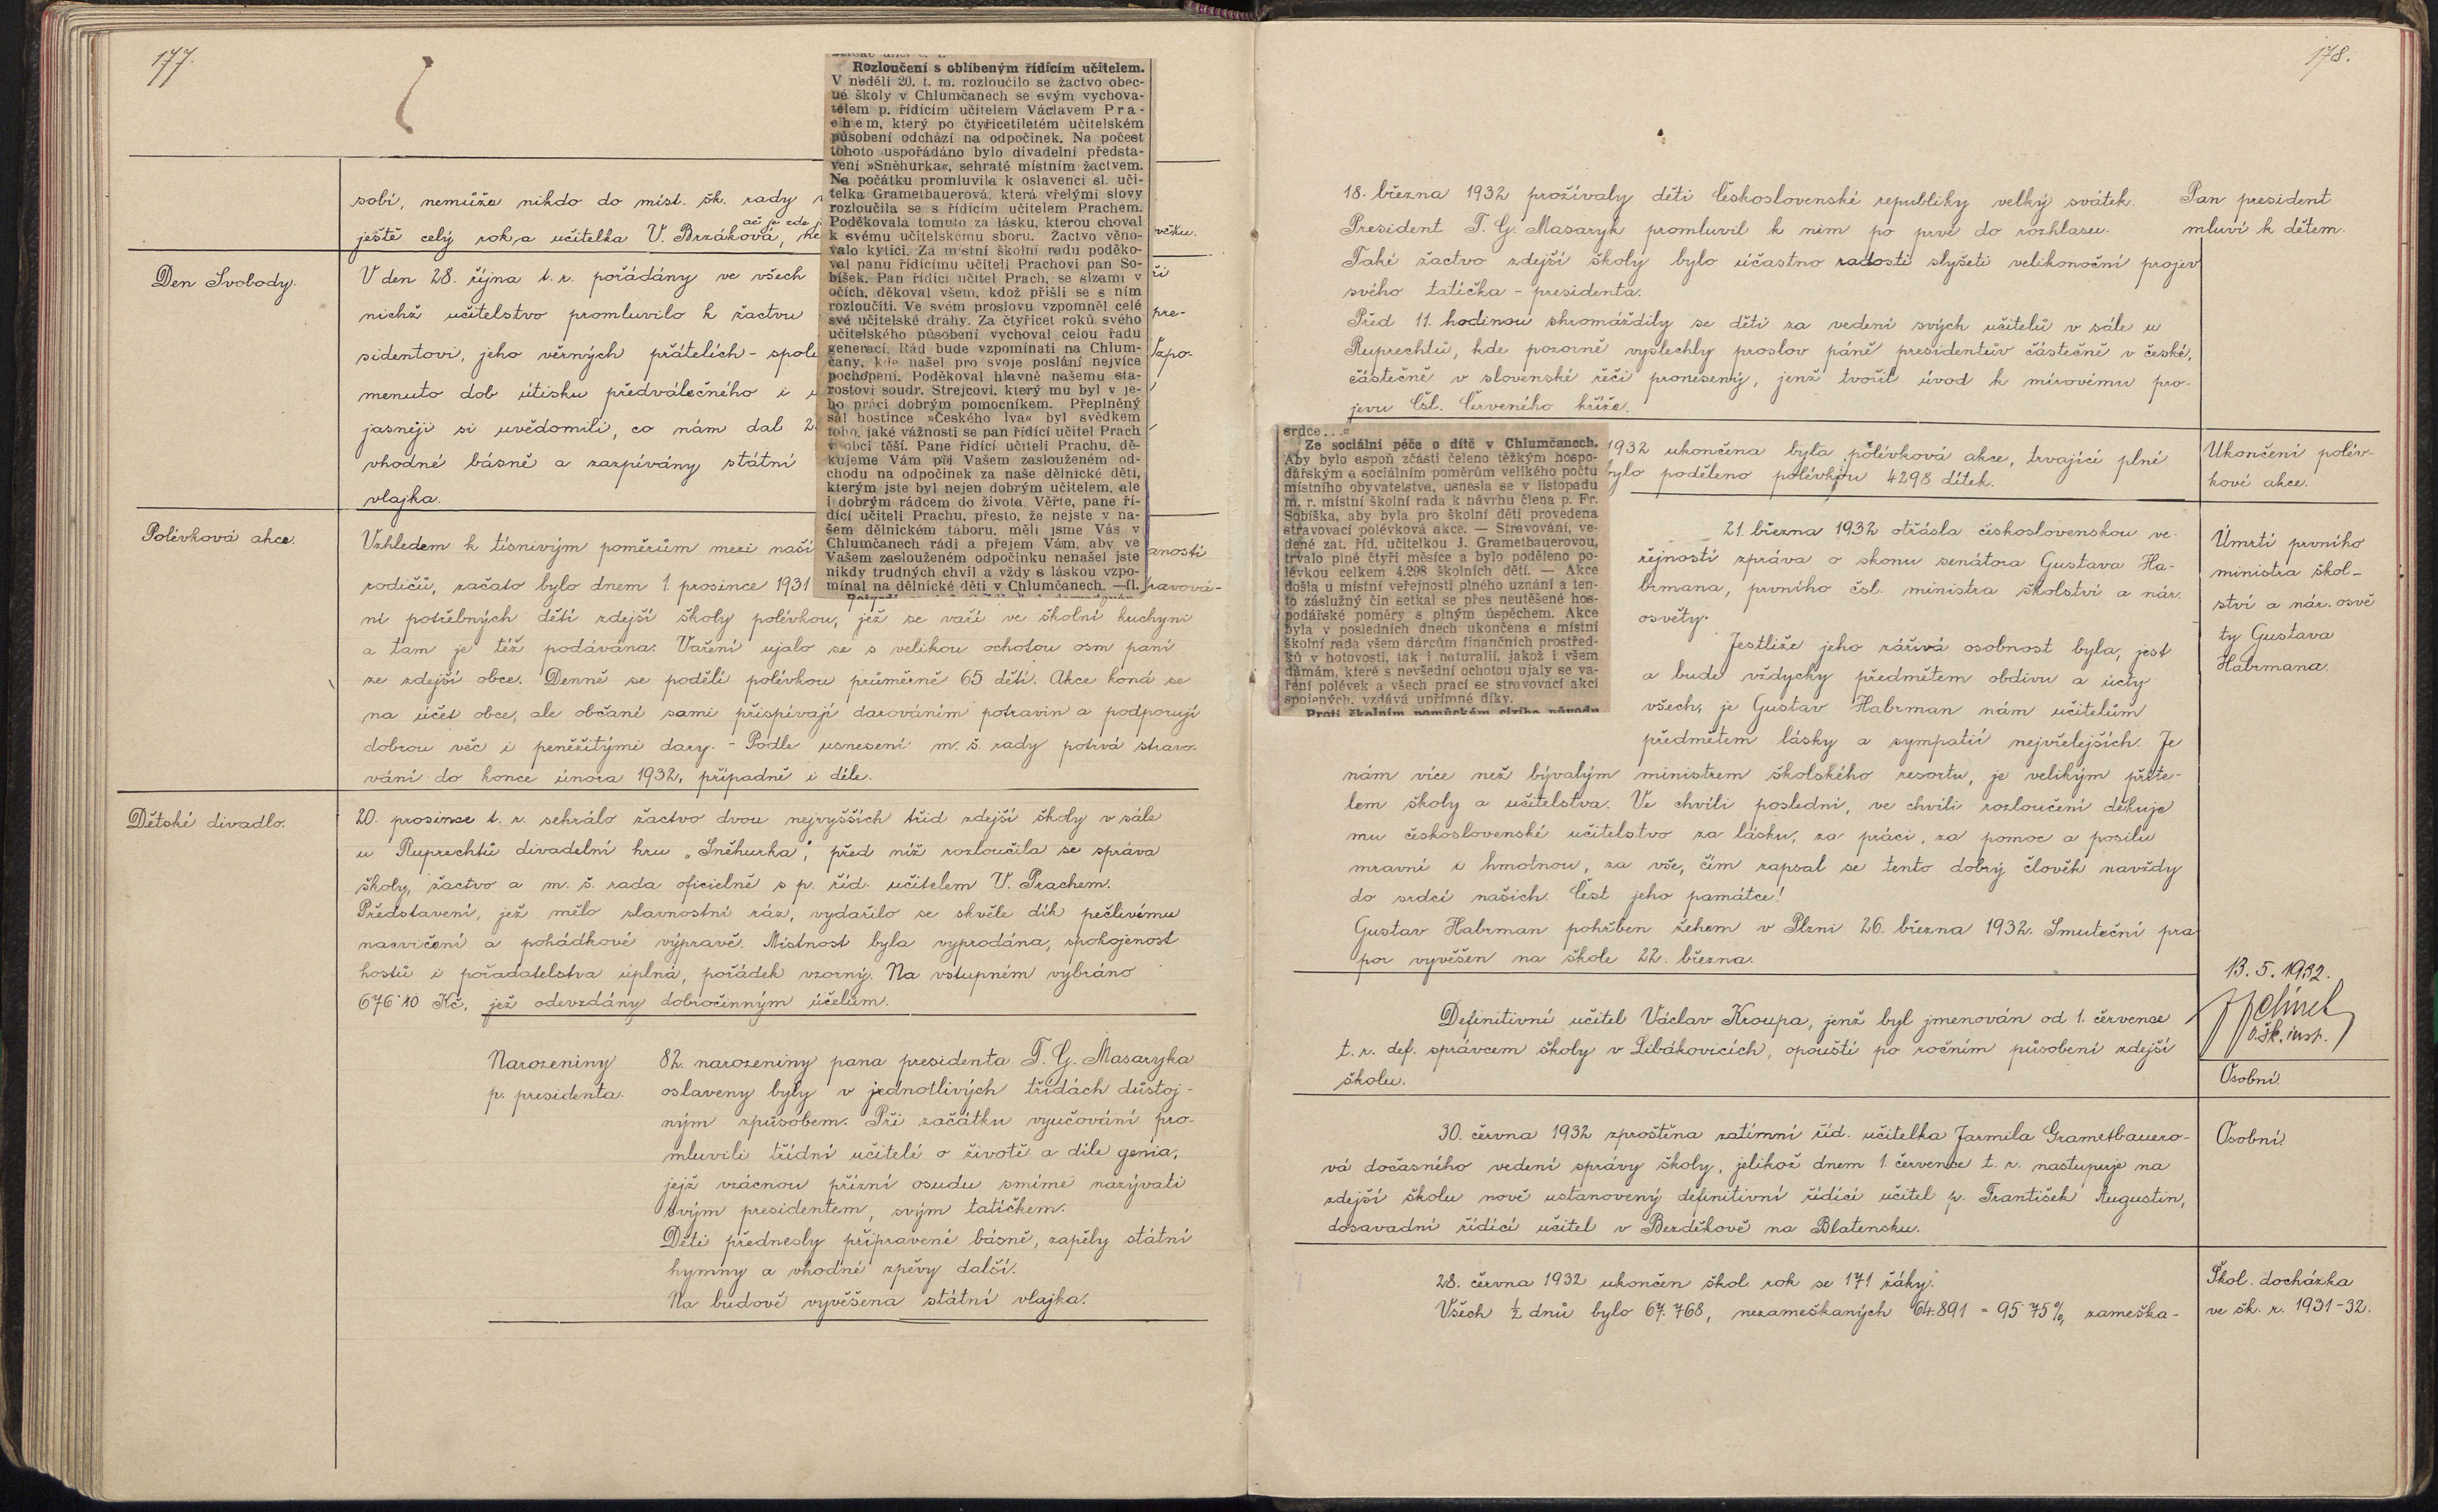 177.
sobí, nemůže nikdo do míst. šk. rady
ač je zde
ještě celý rok, a učitelka V. Brzáková,
věku.
Den Svobody.
V den 28. října t. r. pořádány ve všech
nichž učitelstvo promluvilo k žactvu
pre-
sidentovi, jeho věrných přátelích - spolu
Vzpo-
menuto dob útisku předválečného i
jasněji si uvědomili, co nám dal
vhodné básně a zazpívány státní
vlajka.
Polévková akce.
Vzhledem k tísnivým poměrům mezi naší
anosti
rodičů, začato bylo dnem 1. prosince 1931
travová-
ní potřebných dětí zdejší školy polévkou, jež se vaří ve školní kuchyni
a tam je též podávána. Vaření ujalo se s velikou ochotou osm paní
ze zdejší obce. Denně se podělí polévkou průměrně 65 dětí. Akce koná se
na účet obce, ale občané sami přispívají darováním potravin a podporují
dobrou věc i peněžitými dary. - Podle usnesení m. š. rady potrvá stravo-
vání do konce února 1932, případně i déle.
Dětské divadlo.
20. prosince t. r. sehrálo žactvo dvou nejvyšších tříd zdejší školy v sále
u Ruprechtů divadelní hru „Sněhurka", před níž rozloučila se správa
školy, žactvo a m. š. rada oficielně s p. říd. učitelem V. Prachem.
Představení, jež mělo slavnostní ráz, vydařilo se skvěle dík pečlivému
nacvičení a pohádkové výpravě. Místnost byla vyprodána, spokojenost
hostů i pořadatelstva úplná, pořádek vzorný. Na vstupném vybráno
676·10 Kč, jež odevzdány dobročinným účelům.
Narozeniny
p. presidenta.
82. narozeniny pana presidenta T. G. Masaryka
oslaveny byly v jednotlivých třídách důstoj-
ným způsobem. Při začátku vyučování pro-
mluvili třídní učitelé o životě a díle genia,
jejž vzácnou přízní osudu smíme nazývati
svým presidentem, svým tatíčkem.
Děti přednesly připravené básně, zapěly státní
hymny a vhodné zpěvy další.
Na budově vyvěšena státní vlajka.
Rozloučení s oblíbeným řídícím učitelem.
V neděli 20. t. m. rozloučilo se žactvo obec-
né školy v Chlumčanech se svým vychova-
telem p. řídícím učitelem Václavem Pra-
chem, který po čtyřicetiletém učitelském
působení odchází na odpočinek. Na počest
tohoto uspořádáno bylo divadelní předsta-
vení »Sněhurka«, sehraté místním žactvem.
Na počátku promluvila k oslavenci sl. uči-
telka Grametbauerová, která vřelými slovy
rozloučila se s řídícím učitelem Prachem.
Poděkovala tomuto za lásku, kterou choval
k svému učitelskému sboru. Žactvo věno-
valo kytici. Za místní školní radu poděko-
val panu řídícímu učiteli Prachovi pan So-
bíšek. Pan řídící učitel Prach, se slzami v
očích, děkoval všem, kdož přišli se s ním
rozloučiti. Ve svém proslovu vzpomněl celé
své učitelské dráhy. Za čtyřicet roků svého
učitelského působení vychoval celou řadu
generací. Rád bude vzpomínati na Chlum-
čany, kde našel pro svoje poslání nejvíce
pochopení. Poděkoval hlavně našemu sta-
rostovi soudr. Strejcovi, který mu byl v je-
ho práci dobrým pomocníkem. Přeplněný
sál hostince »Českého lva« byl svědkem
toho, jaké vážnosti se pan řídící učitel Prach
v obci těší. Pane řídící učiteli Prachu, dě-
kujeme Vám při Vašem zaslouženém od-
chodu na odpočinek za naše dělnické děti,
kterým jste byl nejen dobrým učitelem, ale
i dobrým rádcem do života. Věřte, pane ří-
dící učiteli Prachu, přesto, že nejste v na-
šem dělnickém táboru, měli jsme Vás v
Chlumčanech rádi a přejem Vám, aby ve
Vašem zaslouženém odpočinku nenašel jste
nikdy trudných chvil a vždy s láskou vzpo-
mínal na dělnické děti v Chlumčanech. —fl.
178.
18. března 1932 prožívaly děti Československé republiky velký svátek.
President T. G. Masaryk promluvil k nim po prvé do rozhlasu.
Také žactvo zdejší školy bylo účastno radosti slyšeti velikonoční projev
svého tatíčka - presidenta.
Před 11. hodinou shromáždily se děti za vedení svých učitelů v sále u
Ruprechtů, kde pozorně vyslechly proslov páně presidentův částečně v české,
částečně v slovenské řeči pronesený, jenž tvořil úvod k mírovému pro-
jevu Čsl. Červeného kříže.
Pan president
mluví k dětem.
srdce...«
Ze sociální péče o dítě v Chlumčanech.
Aby bylo aspoň zčásti čeleno těžkým hospo-
dářským a sociálním poměrům velikého počtu
místního obyvatelstva, usnesla se v listopadu
m. r. místní školní rada k návrhu člena p. Fr.
Sobíška, aby byla pro školní děti provedena
stravovací polévková akce. — Stravování, ve-
dené zat. říd. učitelkou J. Grametbauerovou,
trvalo plné čtyři měsíce a bylo poděleno po-
lévkou celkem 4.298 školních dětí. — Akce
došla u místní veřejnosti plného uznání a ten-
to záslužný čin setkal se přes neutěšené hos-
podářské poměry s plným úspěchem. Akce
byla v posledních dnech ukončena a místní
školní rada všem dárcům finančních prostřed-
ků v hotovosti, tak i naturalií, jakož i všem
dámám, které s nevšední ochotou ujaly se va-
ření polévek a všech prací se stravovací akcí
spojených, vzdává upřímné díky.
Proti školním pomůckám cizího původu
1932 ukončena byla polévková akce, trvající plné
bylo poděleno polévkou 4298 dítek.
Ukončení polév-
kové akce.
21. března 1932 otřásla československou ve-
řejností zpráva o skonu senátora Gustava Ha-
brmana, prvního čsl. ministra školství a nár.
osvěty.
Jestliže jeho zářivá osobnost byla, jest
a bude vždycky předmětem obdivu a úcty
všech, je Gustav Habrman nám učitelům
předmětem lásky a sympatií nejvřelejších. Je
nám více než bývalým ministrem školského resortu, je velikým příte-
lem školy a učitelstva. Ve chvíli poslední, ve chvíli rozloučení děkuje
mu československé učitelstvo za lásku, za práci, za pomoc a posilu
mravní i hmotnou, za vše, čím zapsal se tento dobrý člověk navždy
do srdcí našich. Čest jeho památce!
Gustav Habrman pohřben žehem v Plzni 26. března 1932. Smuteční pra
por vyvěšen na škole 22. března.
Úmrtí prvního
ministra škol-
ství a nár. osvě
ty Gustava
Habrmana.
13. 5. 1932.
o. šk. insp.
Definitivní učitel Václav Kroupa, jenž byl jmenován od 1. července
t. r. def. správcem školy v Libákovicích, opouští po ročním působení zdejší
školu.
Osobní.
30. června 1932 zproštěna zatímní říd. učitelka Jarmila Grametbauero-
vá dočasného vedení správy školy, jelikož dnem 1. července t. r. nastupuje na
zdejší školu nově ustanovený definitivní řídící učitel p. František Augustin,
dosavadní řídící učitel v Bezděkově na Blatensku.
Osobní.
28. června 1932 ukončen škol. rok se 171 žáky.
Všech ½ dnů bylo 67.768, nezameškaných 64.891 = 95·75%, zameška-
Škol. docházka
ve šk. r. 1931-32.